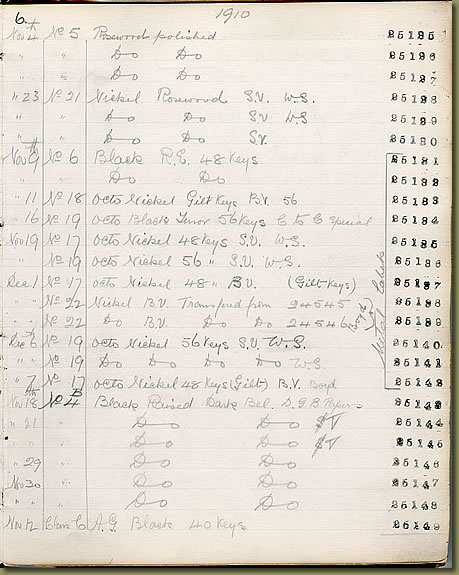 6 1910
Nov 4th No 5 Rosewood polished 25125
Do Do 25126
Do Do 25127
" 23 No 21 Nickel Rosewood S.V. W.S. 25128
" " Do Do S.V W.S 25129
" " Do Do S.V. 25130
Nov 9th No 6 Black R.E. 48 Keys 25131
Do Do 25132
" 11 No 18 Octo Nickel Gilt Keys B.V. 56 25133
" 16 No 19 Octo Black Tenor 56 Keys C to C Special 25134
Nov 19 No 17 Octo Nickel 48 Keys S.V. W.S. 25135
" No 19 Octo Nickel 56 " S.V. W.S. 25136
Dec 1 No 17 Octo Nickel 48 " B.V. (Gilt Keys) 25137
" No 22 Nickel B.V. Transferred from 24545 25138
" No 22 Do B.V. Do Do 24546 25139
Dec 6th No 19 Octo Nickel 56 Keys S.V. W.S. 25140
" No 19 Do Do Do Do W.S 25141
" 7 No 17 Octo Nickel 48 Keys (Gilt) B.V. Boyd 25142
Boyd
Labels
Nov 18th No 4 B Black Raised Dark Bel. D.G.B Papers 25143
" 21 " Do Do 25144
" " Do Do 25145
" 29 " Do Do 25146
Nov 30 " Do Do 25147
" " Do Do 25148
Nov 12 Class C A.G. Black 40 Keys 25149